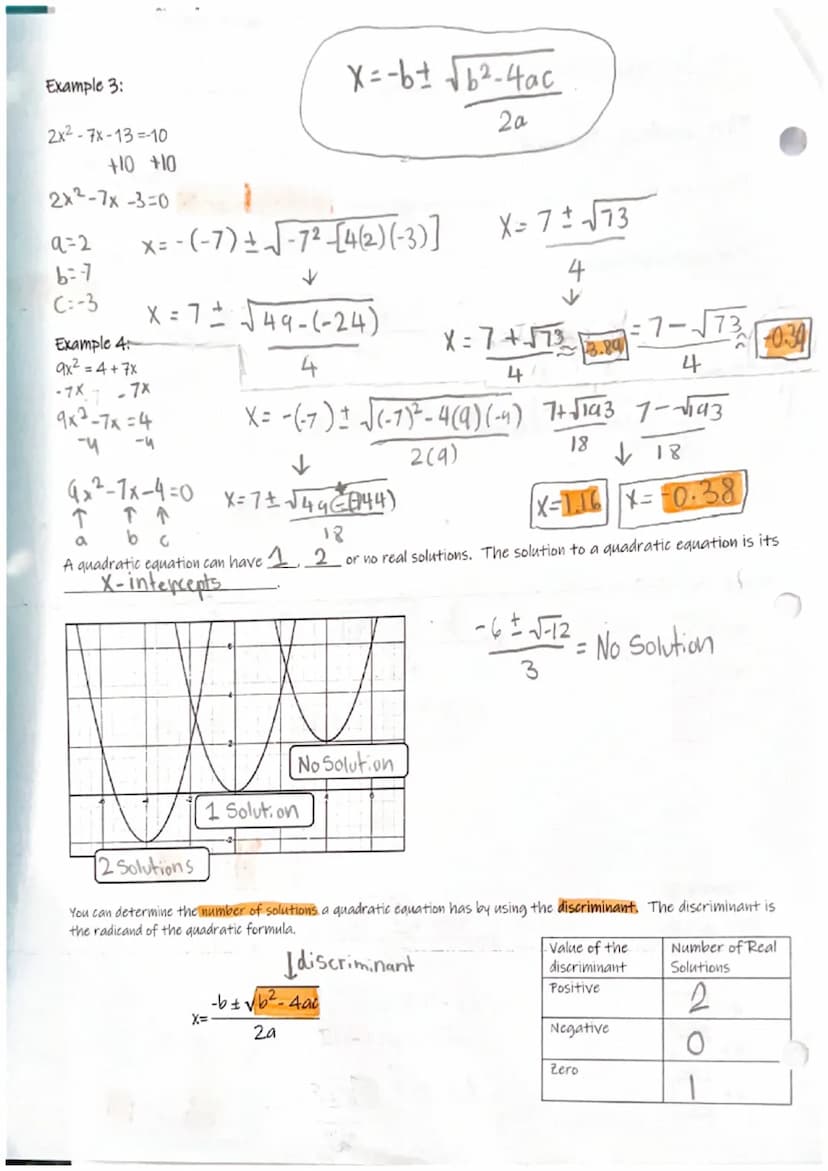 x = -b ± √b² - 4ac
2a
Example 3:
2x² - 7x - 13 = -10
+10 +10
2x² - 7x - 3 = 0
a = 2
b = -7
c: -3
x = -(-7) ± √-7² - [4(2)(-3)]
↓
x = 7 ± √49 - (-24)
4
x = 7 ± √73
4
↓
x = 7 + √73 ≈ 3.89
4
= 7 - √73 ≈ -0.39
4
Example 4:
9x² = 4 + 7x
-7x - 7x
9x² - 7x = 4
-4 -4
9x² - 7x - 4 = 0
↑ ↑ ↑
a b c
x = -(-7) ± √(-7)² - 4(9)(-4)
2(9)
↓
x = 7 ± √49 - (-144)
18
7 + √193 7 - √193
18 ↓ 18
x = 1.16 x = -0.38
A quadratic equation can have 1, 2 or no real solutions. The solution to a quadratic equation is its
x-intercepts.
-6 ± √-12 = No Solution
3
6
4
2
-2
No Solution
1 Solution
2 Solutions
You can determine the number of solutions a quadratic equation has by using the discriminant. The discriminant is
the radicand of the quadratic formula.
↓ discriminant
x = -b ± √b² - 4ac
2a
Value of the discriminant Number of Real Solutions
Positive 2
Negative 0
Zero 1